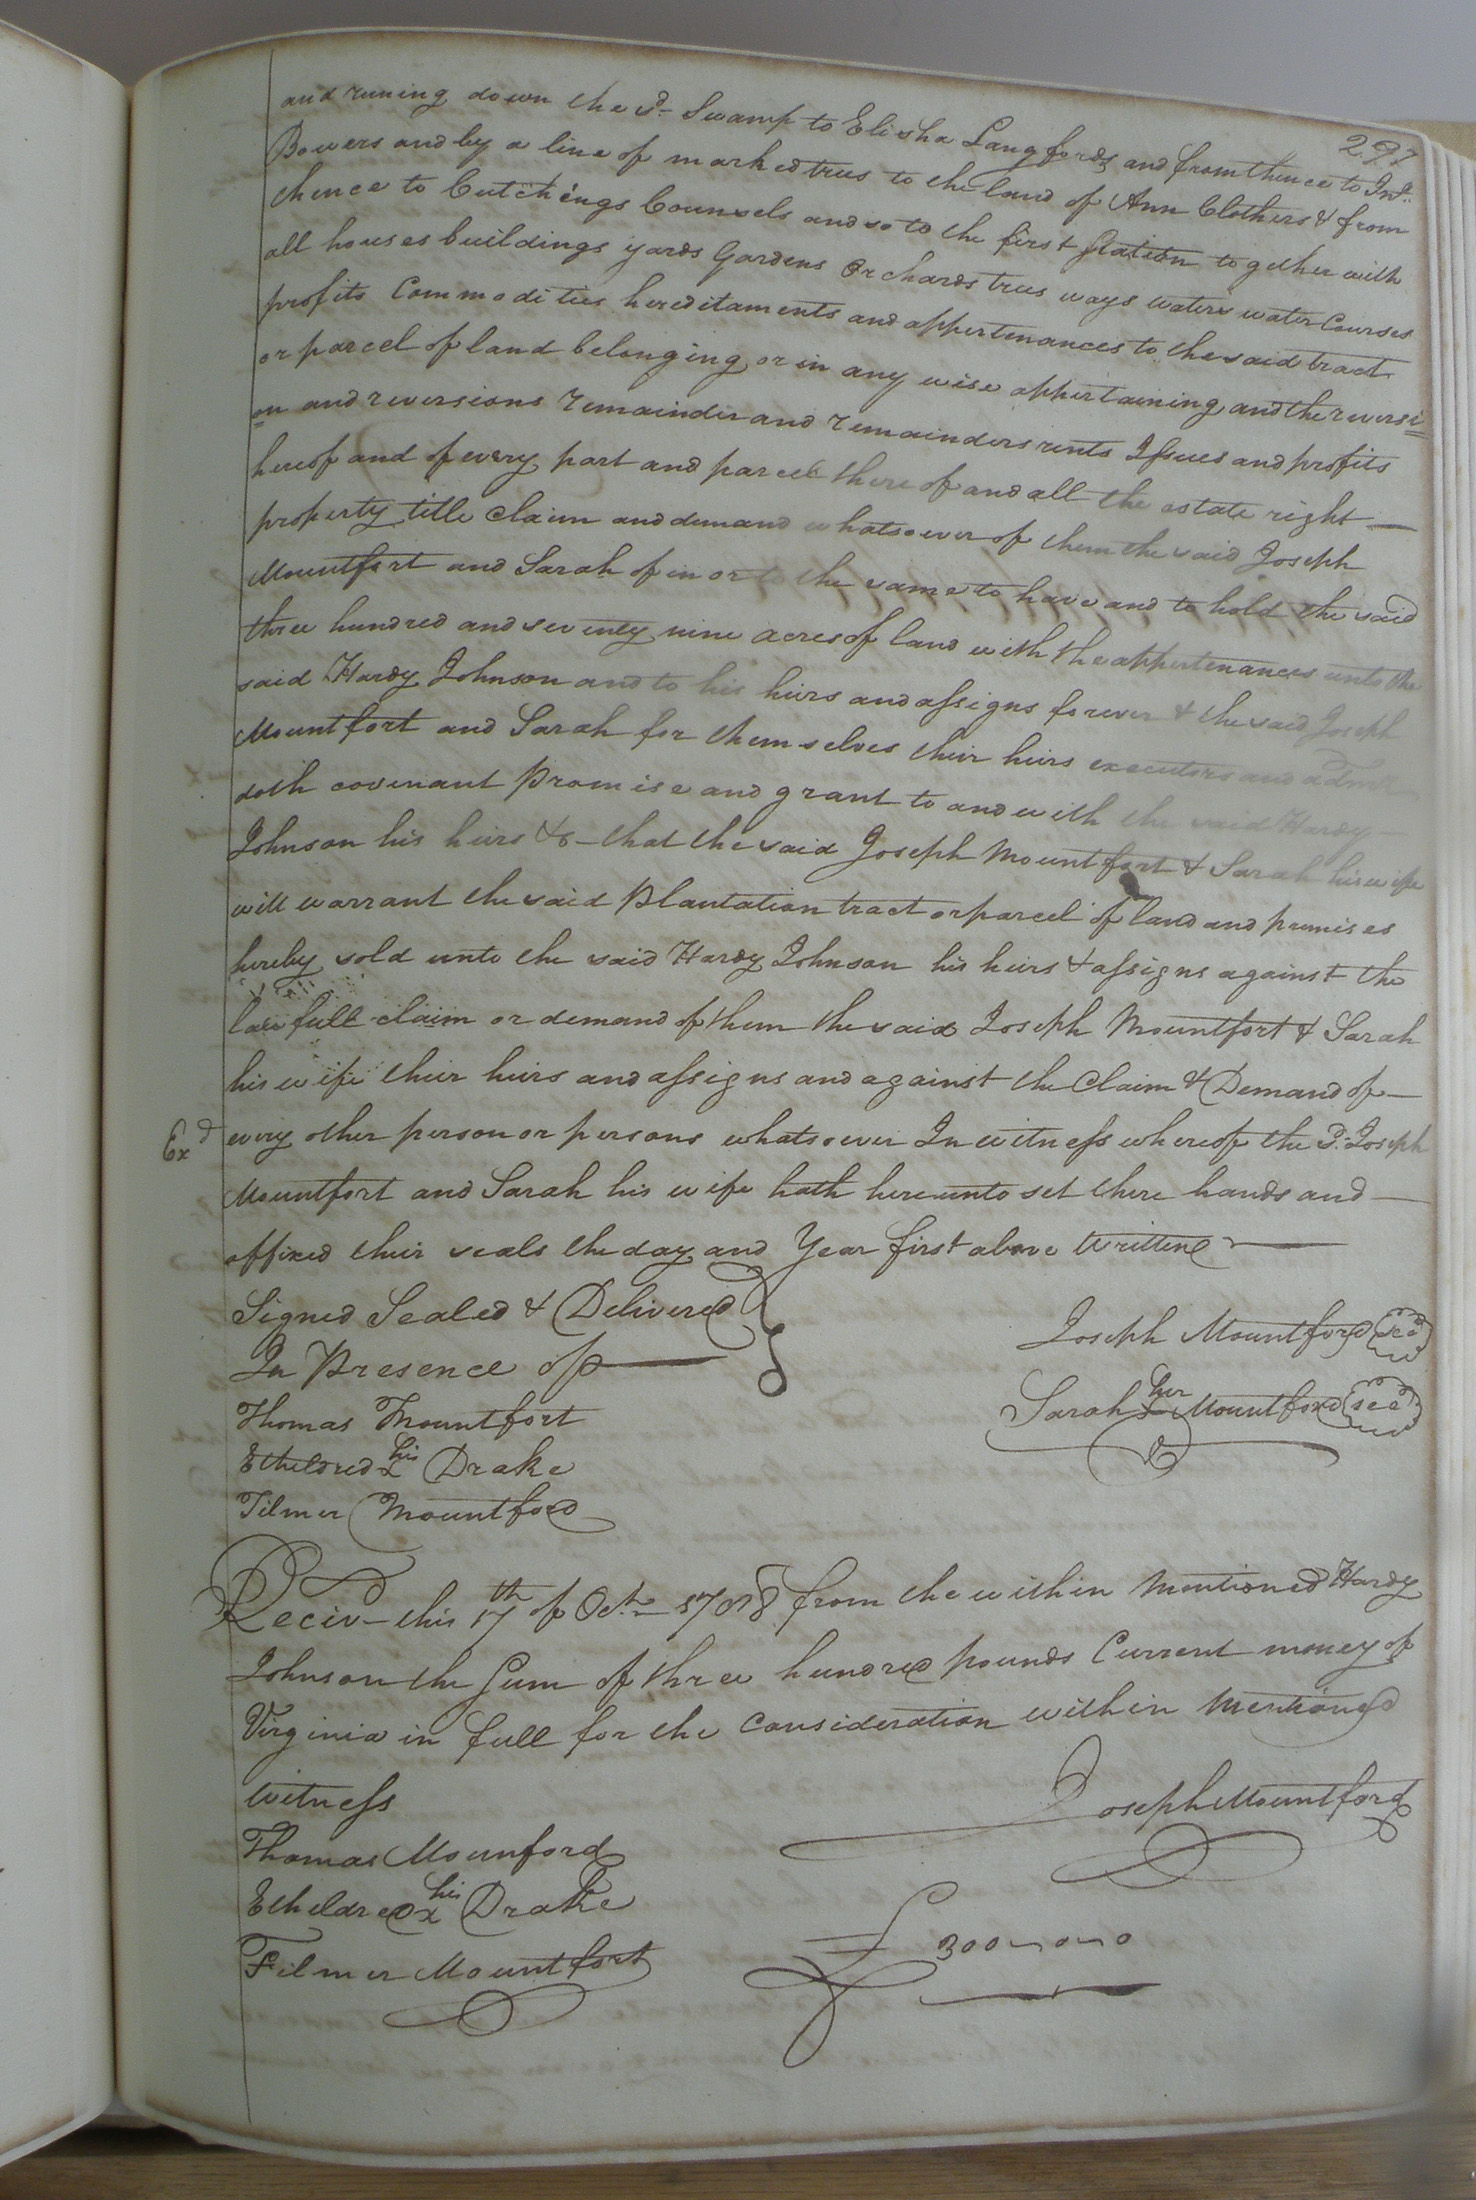 297
and runing down the sd. Swamp to Elisha Langfords and from thence to Jno.
Bowers and by a line of marked trees to the land of Ann Clothers & from
thence to Cutchings Counsels and so to the first station together with
all houses buildings yards Gardens Orchards trees ways waters water Courses
profits Commodities hereditaments and appertenances to the said tract
or parcel of land belonging or in any wise appertaining and the reversi=
on and reversions remainder and remainders rents Issues and profits
hereof and of every part and parcel there of and all the estate right
property title claim and demand whatsoever of them the said Joseph
Mountfort and Sarah of in or to the same to have and to hold the said
three hundred and seventy nine acres of land with the appertenances unto the
said Hardy Johnson and to his heirs and assigns forever & the said Joseph
Mountfort and Sarah for themselves their heirs executors and admrs
doth covenant Promise and grant to and with the said Hardy
Johnson his heirs &c - that the said Joseph Mountfort & Sarah his wife
will warrant the said Plantation tract or parcel of land and premises
hereby sold unto the said Hardy Johnson his heirs & assigns against the
lawfull claim or demand of them the said Joseph Mountfort & Sarah
his wife their heirs and assigns and against the Claim & Demand of
Exd every other person or persons whatsoever In witness whereof the Sd. Joseph
Mountfort and Sarah his wife hath hereunto set there hands and
affixed their seals the day and Year first above written
Signed Sealed & Delivered
In Presence of
Joseph Mountford Seal
Thomas Mountfort
Sarah her x Mountford Seal
Etheldred his x Drake
Filmer Mountford
Reciv- this 17th of Octr. 1788 from the within Mentioned Hardy
Johnson the Sum of three hundred pounds Current money of
Virginia in full for the Consideration within Mentioned
Witness
Joseph Mountford
Thomas Mounford
Etheldred his x Drake
£ 300-0-0
Filmer Mountfort